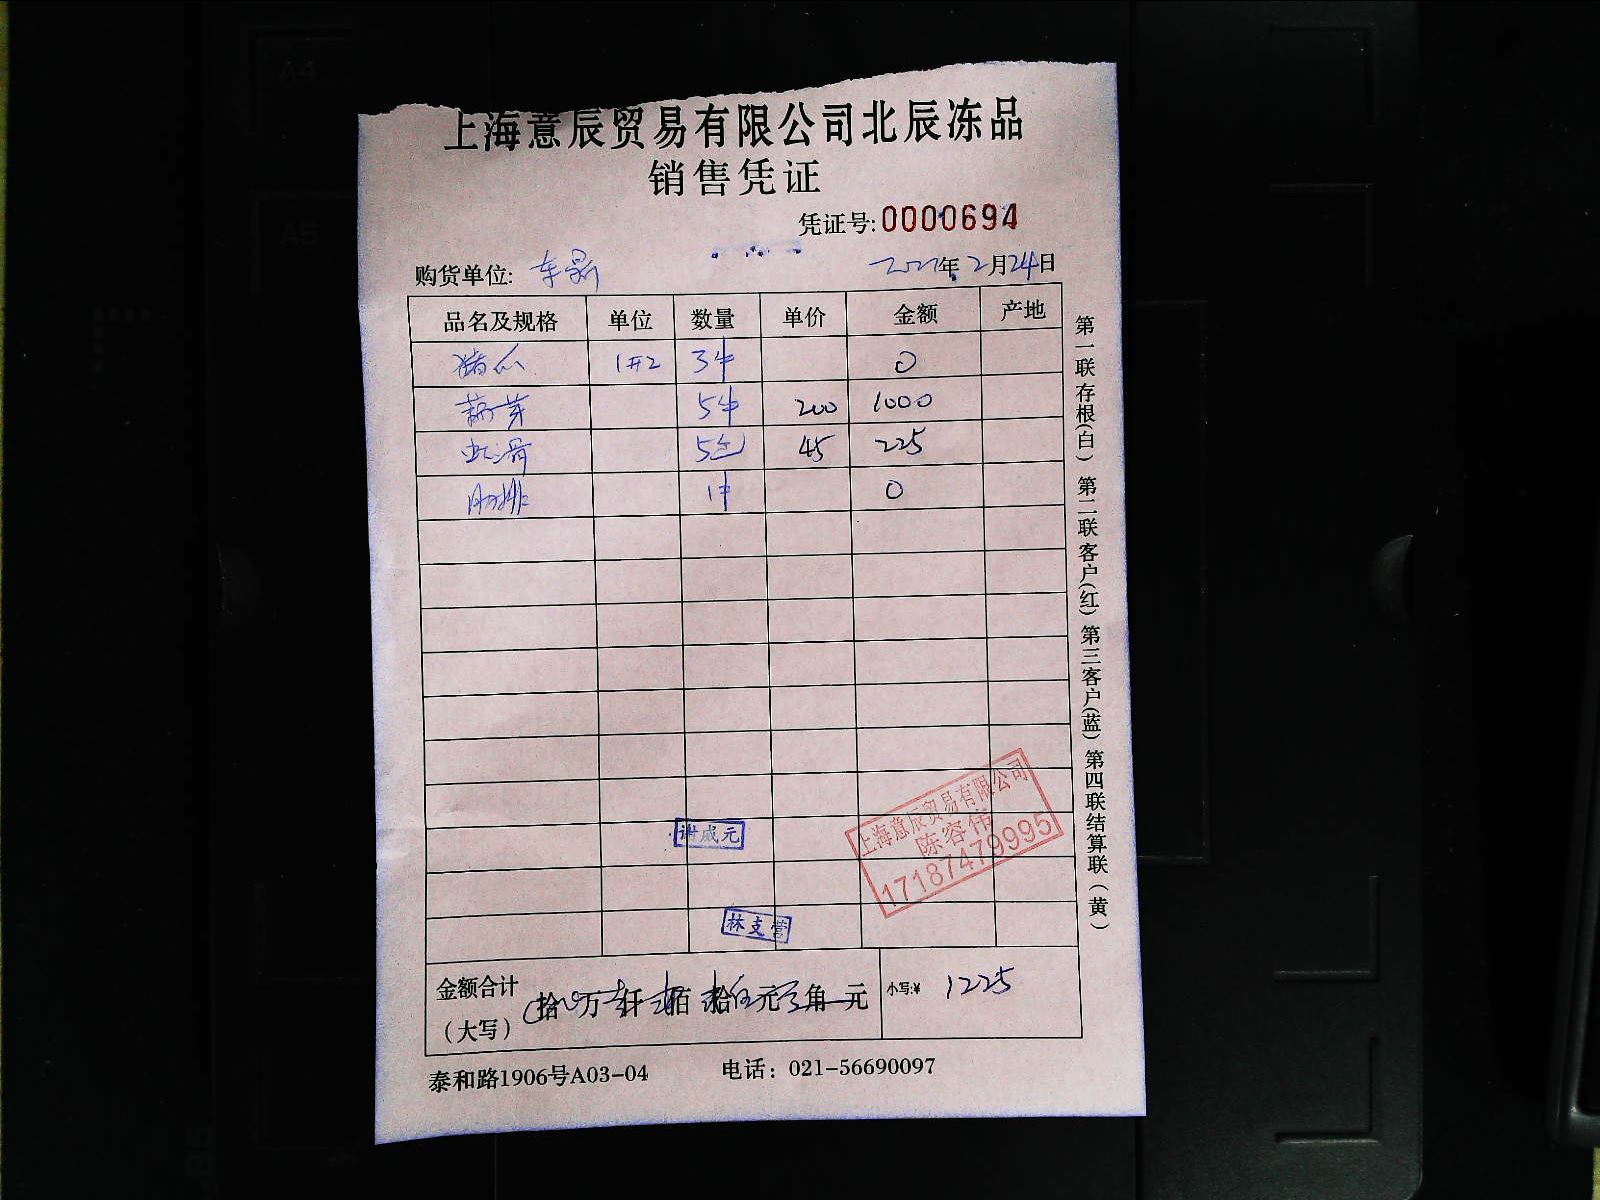 上海意辰贸易有限公司北辰冻品
销售凭证
凭证号:0000694
购货单位:
年2月24日
品名及规格 单位 数量 单价 金额 产地
猪爪 1开2 3件 0
藕芽 5件 200 1000
虾滑 5包 45 225
肋排 1件 0
谢成元
上海意辰贸易有限公司
陈容伟
17187479995
林支营
金额合计 拾 万 仟 佰 拾 元 角 元 小写:¥ 1225
(大写)
泰和路1906号A03-04 电话：021-56690097
第一联存根(白) 第二联客户(红) 第三客户(蓝) 第四联结算联(黄)